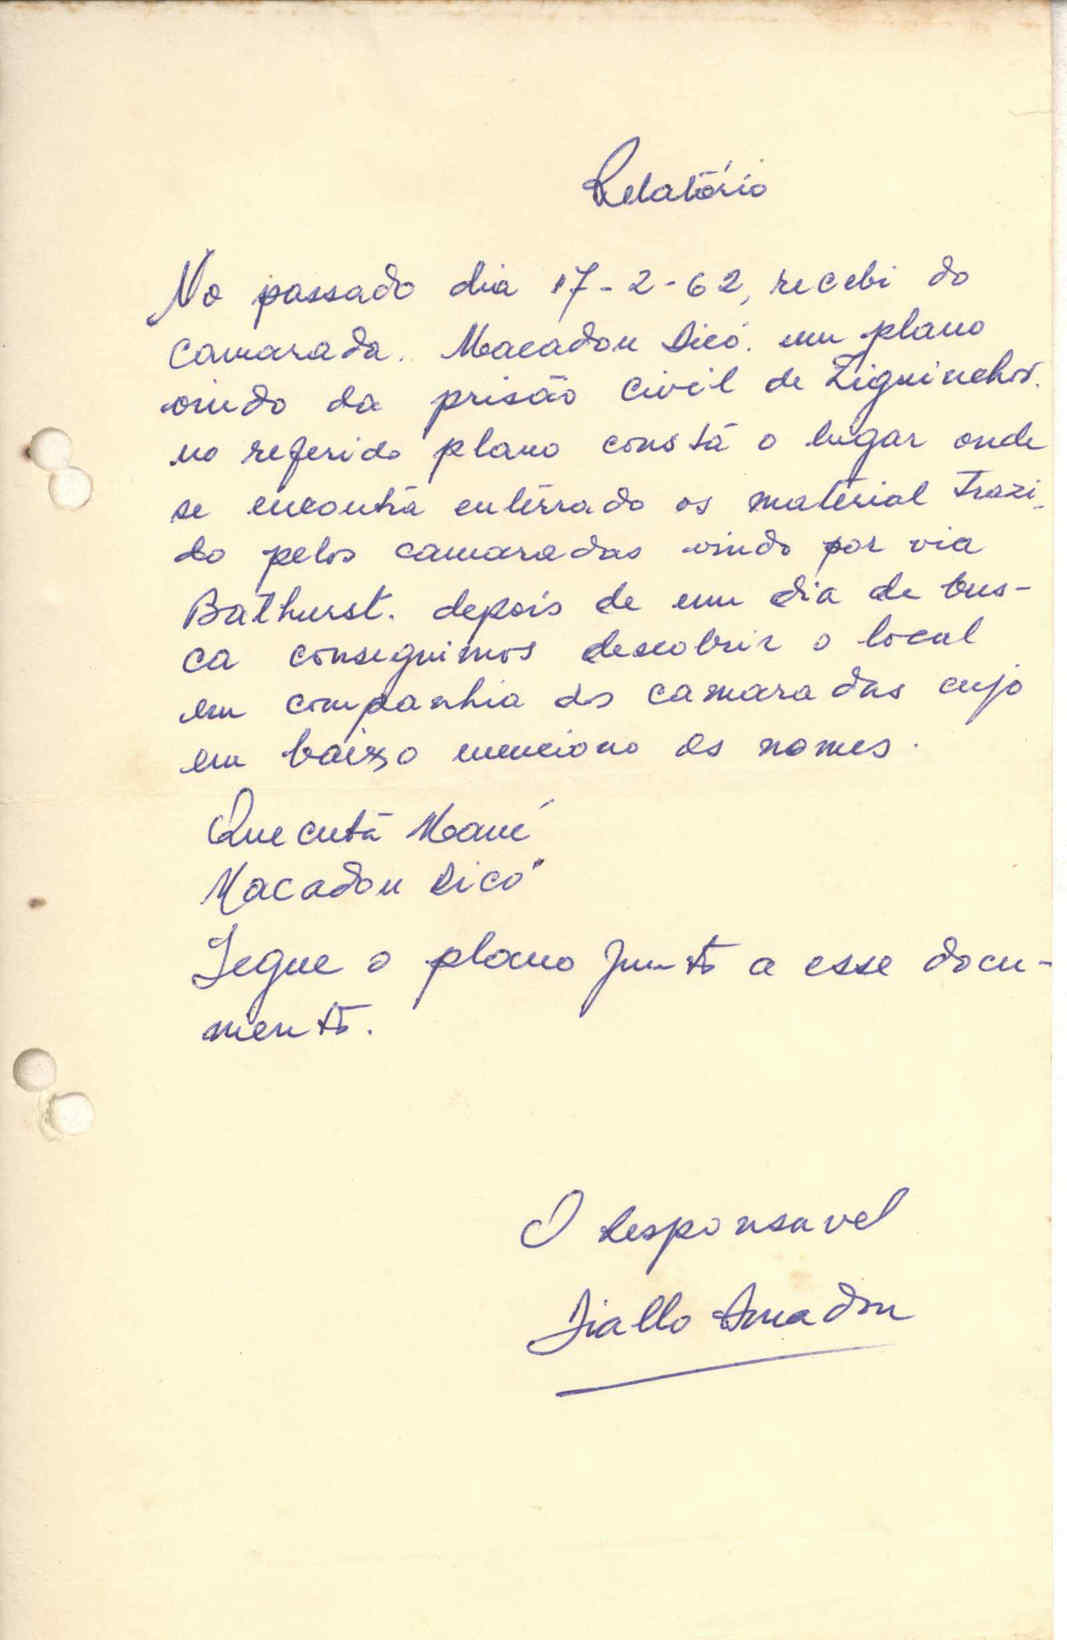 Relatório
No passado dia 17-2-62, recebi do
camarada. Macadou Dicó. um plano
vindo da prisão civil de Ziguinchor.
no referido plano constá o lugar onde
se encontrá enterrado os material Trazi-
do pelos camaradas vindo por via
Bathurst. depois de um dia de bus-
ca conseguimos descobrir o local
em companhia dos camaradas cujo
em baixo menciono os nomes.
Quecutá Mané
Macadou Dicó
Segue o plano Junto a esse docu-
mento.
O Responsavel
Diallo Amadou